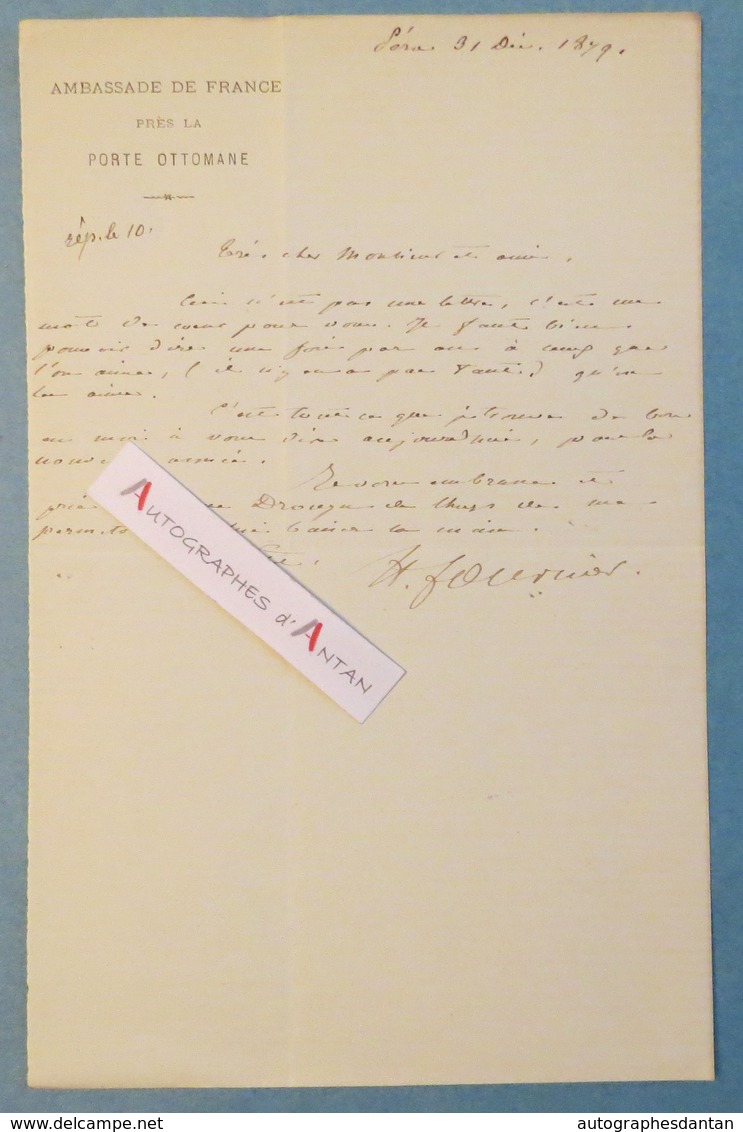 Péra 31 Déc. 1879.
AMBASSADE DE FRANCE
PRÈS LA
PORTE OTTOMANE
rép. le 10.
Très cher Monsieur et ami,
Ceci n'est pas une lettre, c'est un
mot de cœur pour vous. Il faut bien
pouvoir dire une fois par an à ceux que
l'on aime, (il n'y en a pas tant) qu'on
les aime.
C'est tout ce que je trouve de bon
en moi à vous dire aujourd'hui, pour la
année.
Je vous embrasse et
Drouyn de Lhuys de me
baiser la main.
H. Fournier.
AUTOGRAPHES d'ANTAN
delcampe.net
autographesdantan